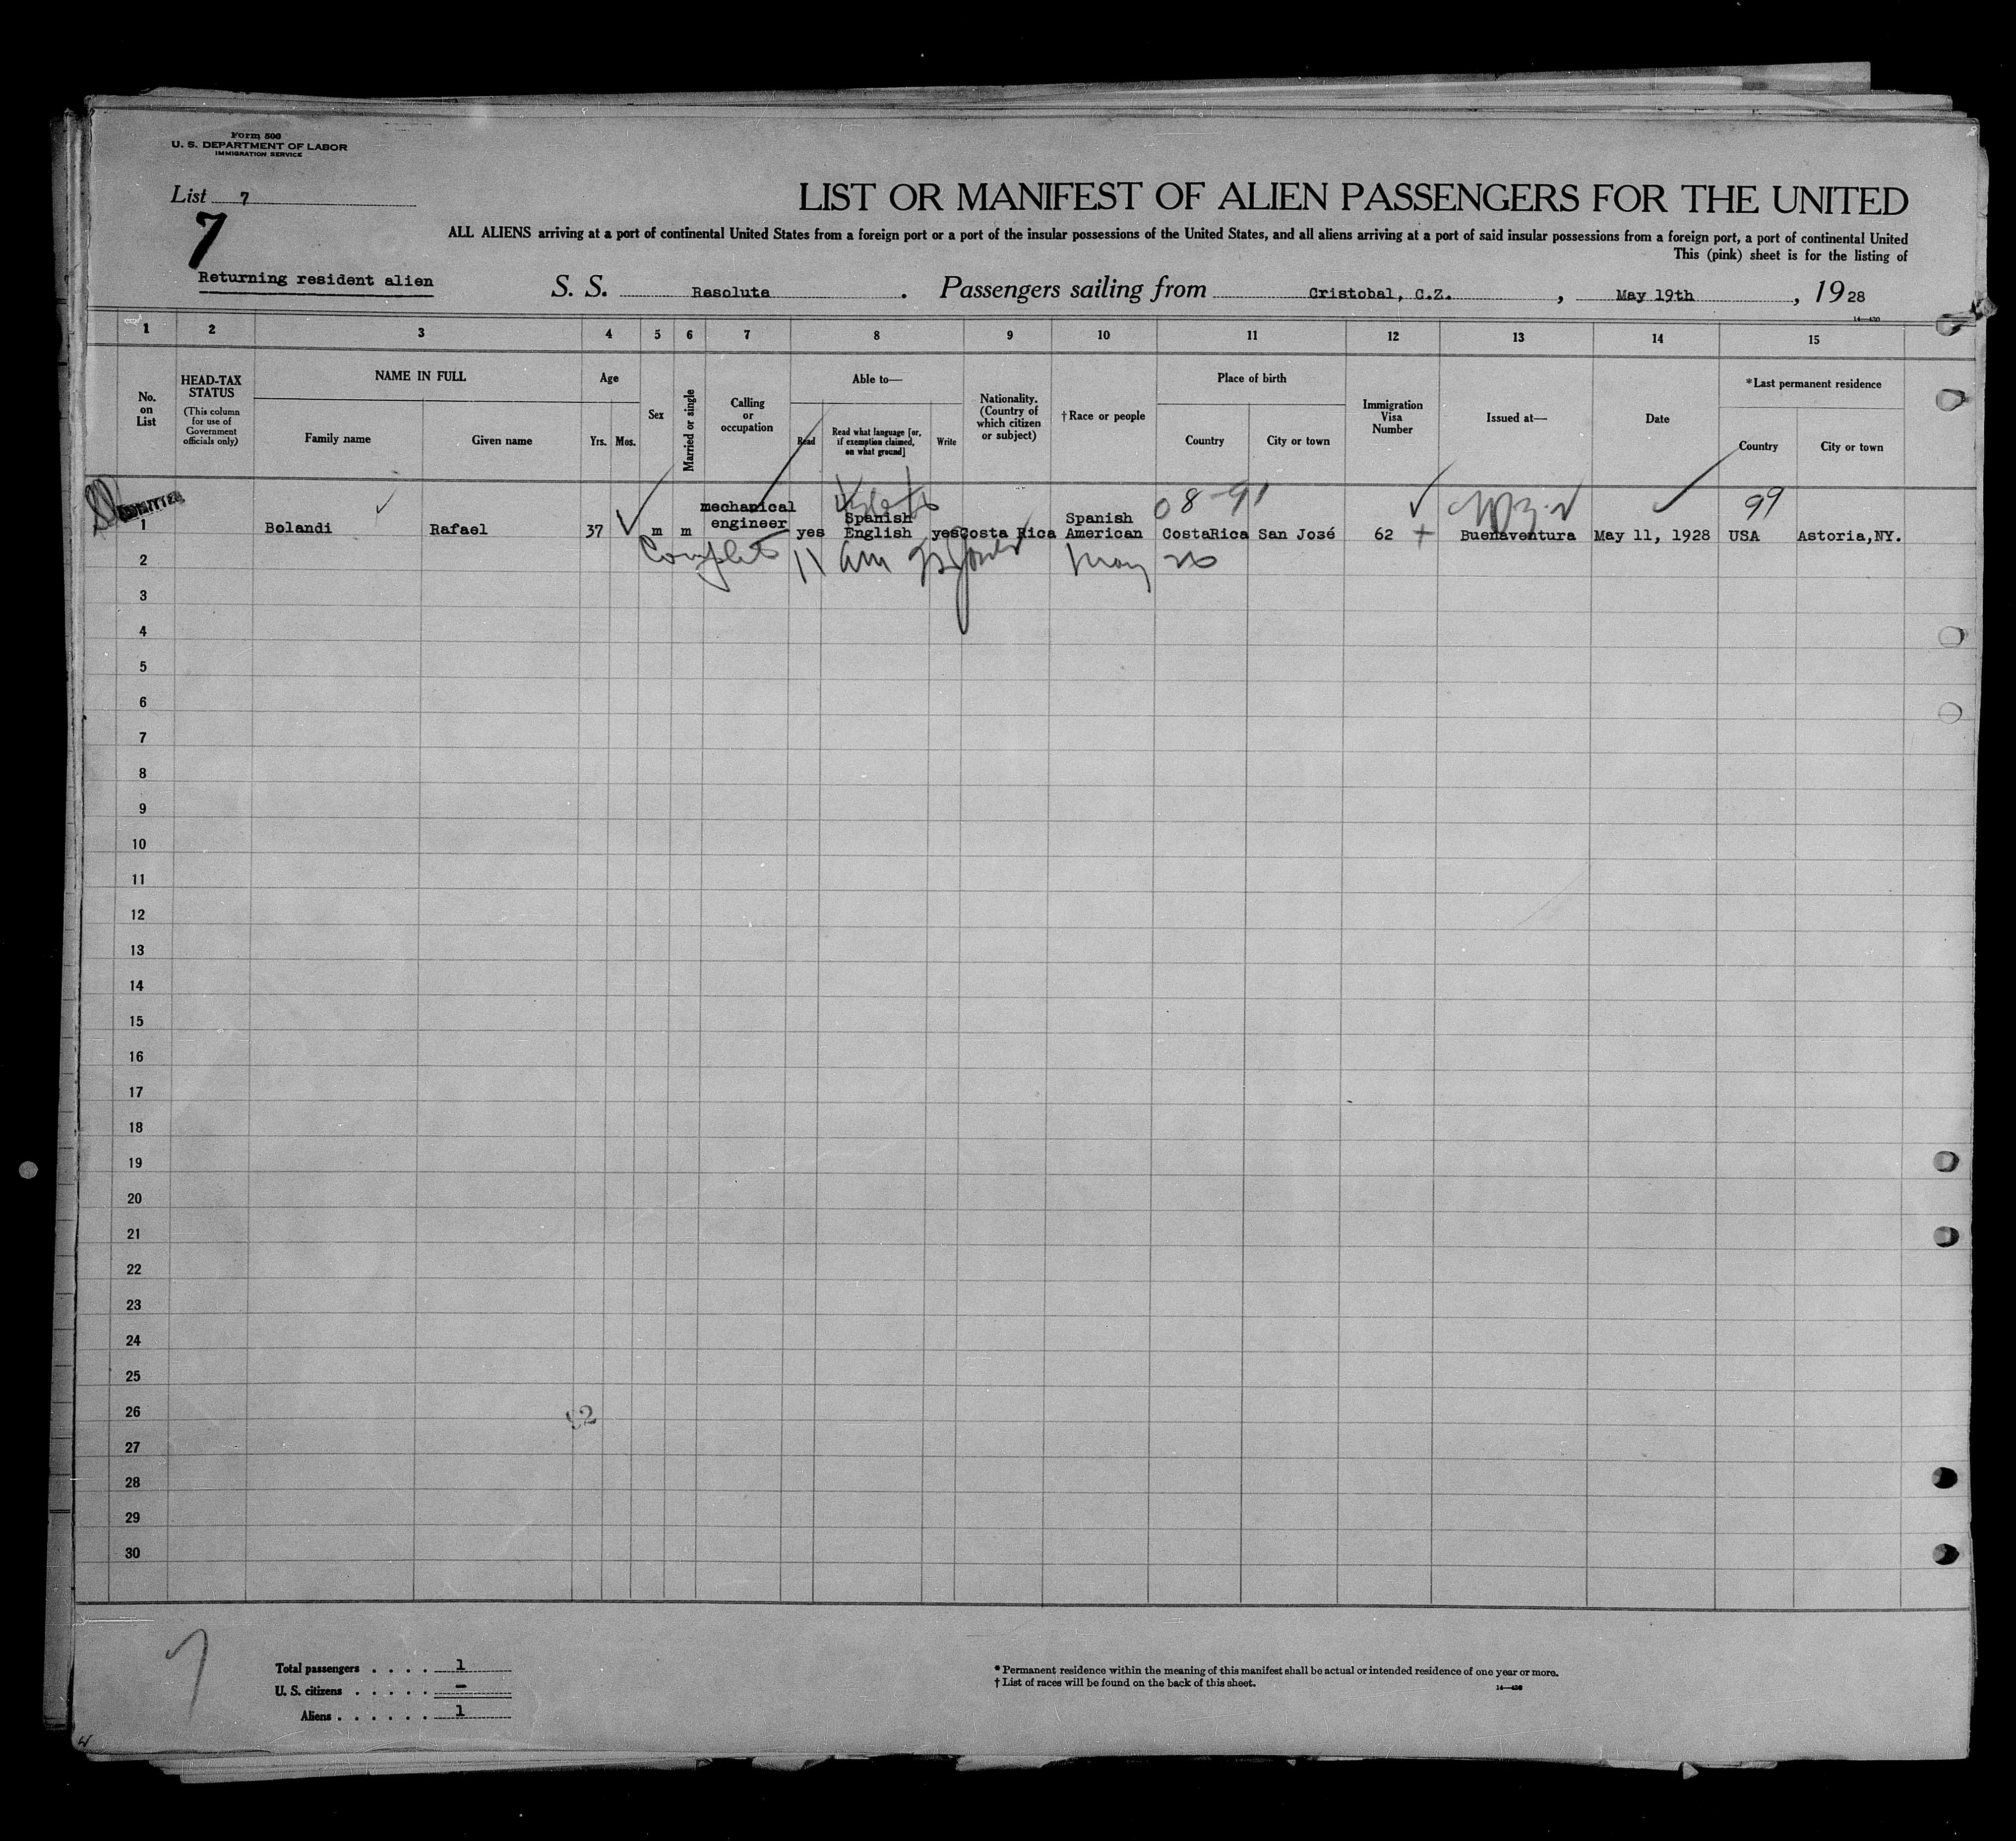 Form 500
U. S. DEPARTMENT OF LABOR
IMMIGRATION SERVICE
List 7
7
LIST OR MANIFEST OF ALIEN PASSENGERS FOR THE UNITED
ALL ALIENS arriving at a port of continental United States from a foreign port or a port of the insular possessions of the United States, and all aliens arriving at a port of said insular possessions from a foreign port, a port of continental United
This (pink) sheet is for the listing of
Returning resident alien
S. S. Resolute. Passengers sailing from Cristobal, C.Z., May 19th, 1928
1 2 3 4 5 6 7 8 9 10 11 12 13 14 15
No. on List
HEAD-TAX STATUS
(This column for use of Government officials only)
NAME IN FULL
Family name
Given name
Age
Yrs. Mos.
Sex
Married or single
Calling or occupation
Able to—
Read
Read what language [or, if exemption claimed, on what ground]
Write
Nationality. (Country of which citizen or subject)
†Race or people
Place of birth
Country
City or town
Immigration Visa Number
Issued at—
Date
*Last permanent residence
Country
City or town
08-91
99
1 Bolandi Rafael 37 m m mechanical engineer yes Spanish English yes Costa Rica Spanish American CostaRica San José 62 Buenaventura May 11, 1928 USA Astoria,NY.
Complete 11 am May 26
2
3
4
5
6
7
8
9
10
11
12
13
14
15
16
17
18
19
20
21
22
23
24
25
26
27
28
29
30
7
Total passengers . . . . 1
U. S. citizens . . . . . –
Aliens . . . . . . 1
* Permanent residence within the meaning of this manifest shall be actual or intended residence of one year or more.
† List of races will be found on the back of this sheet.